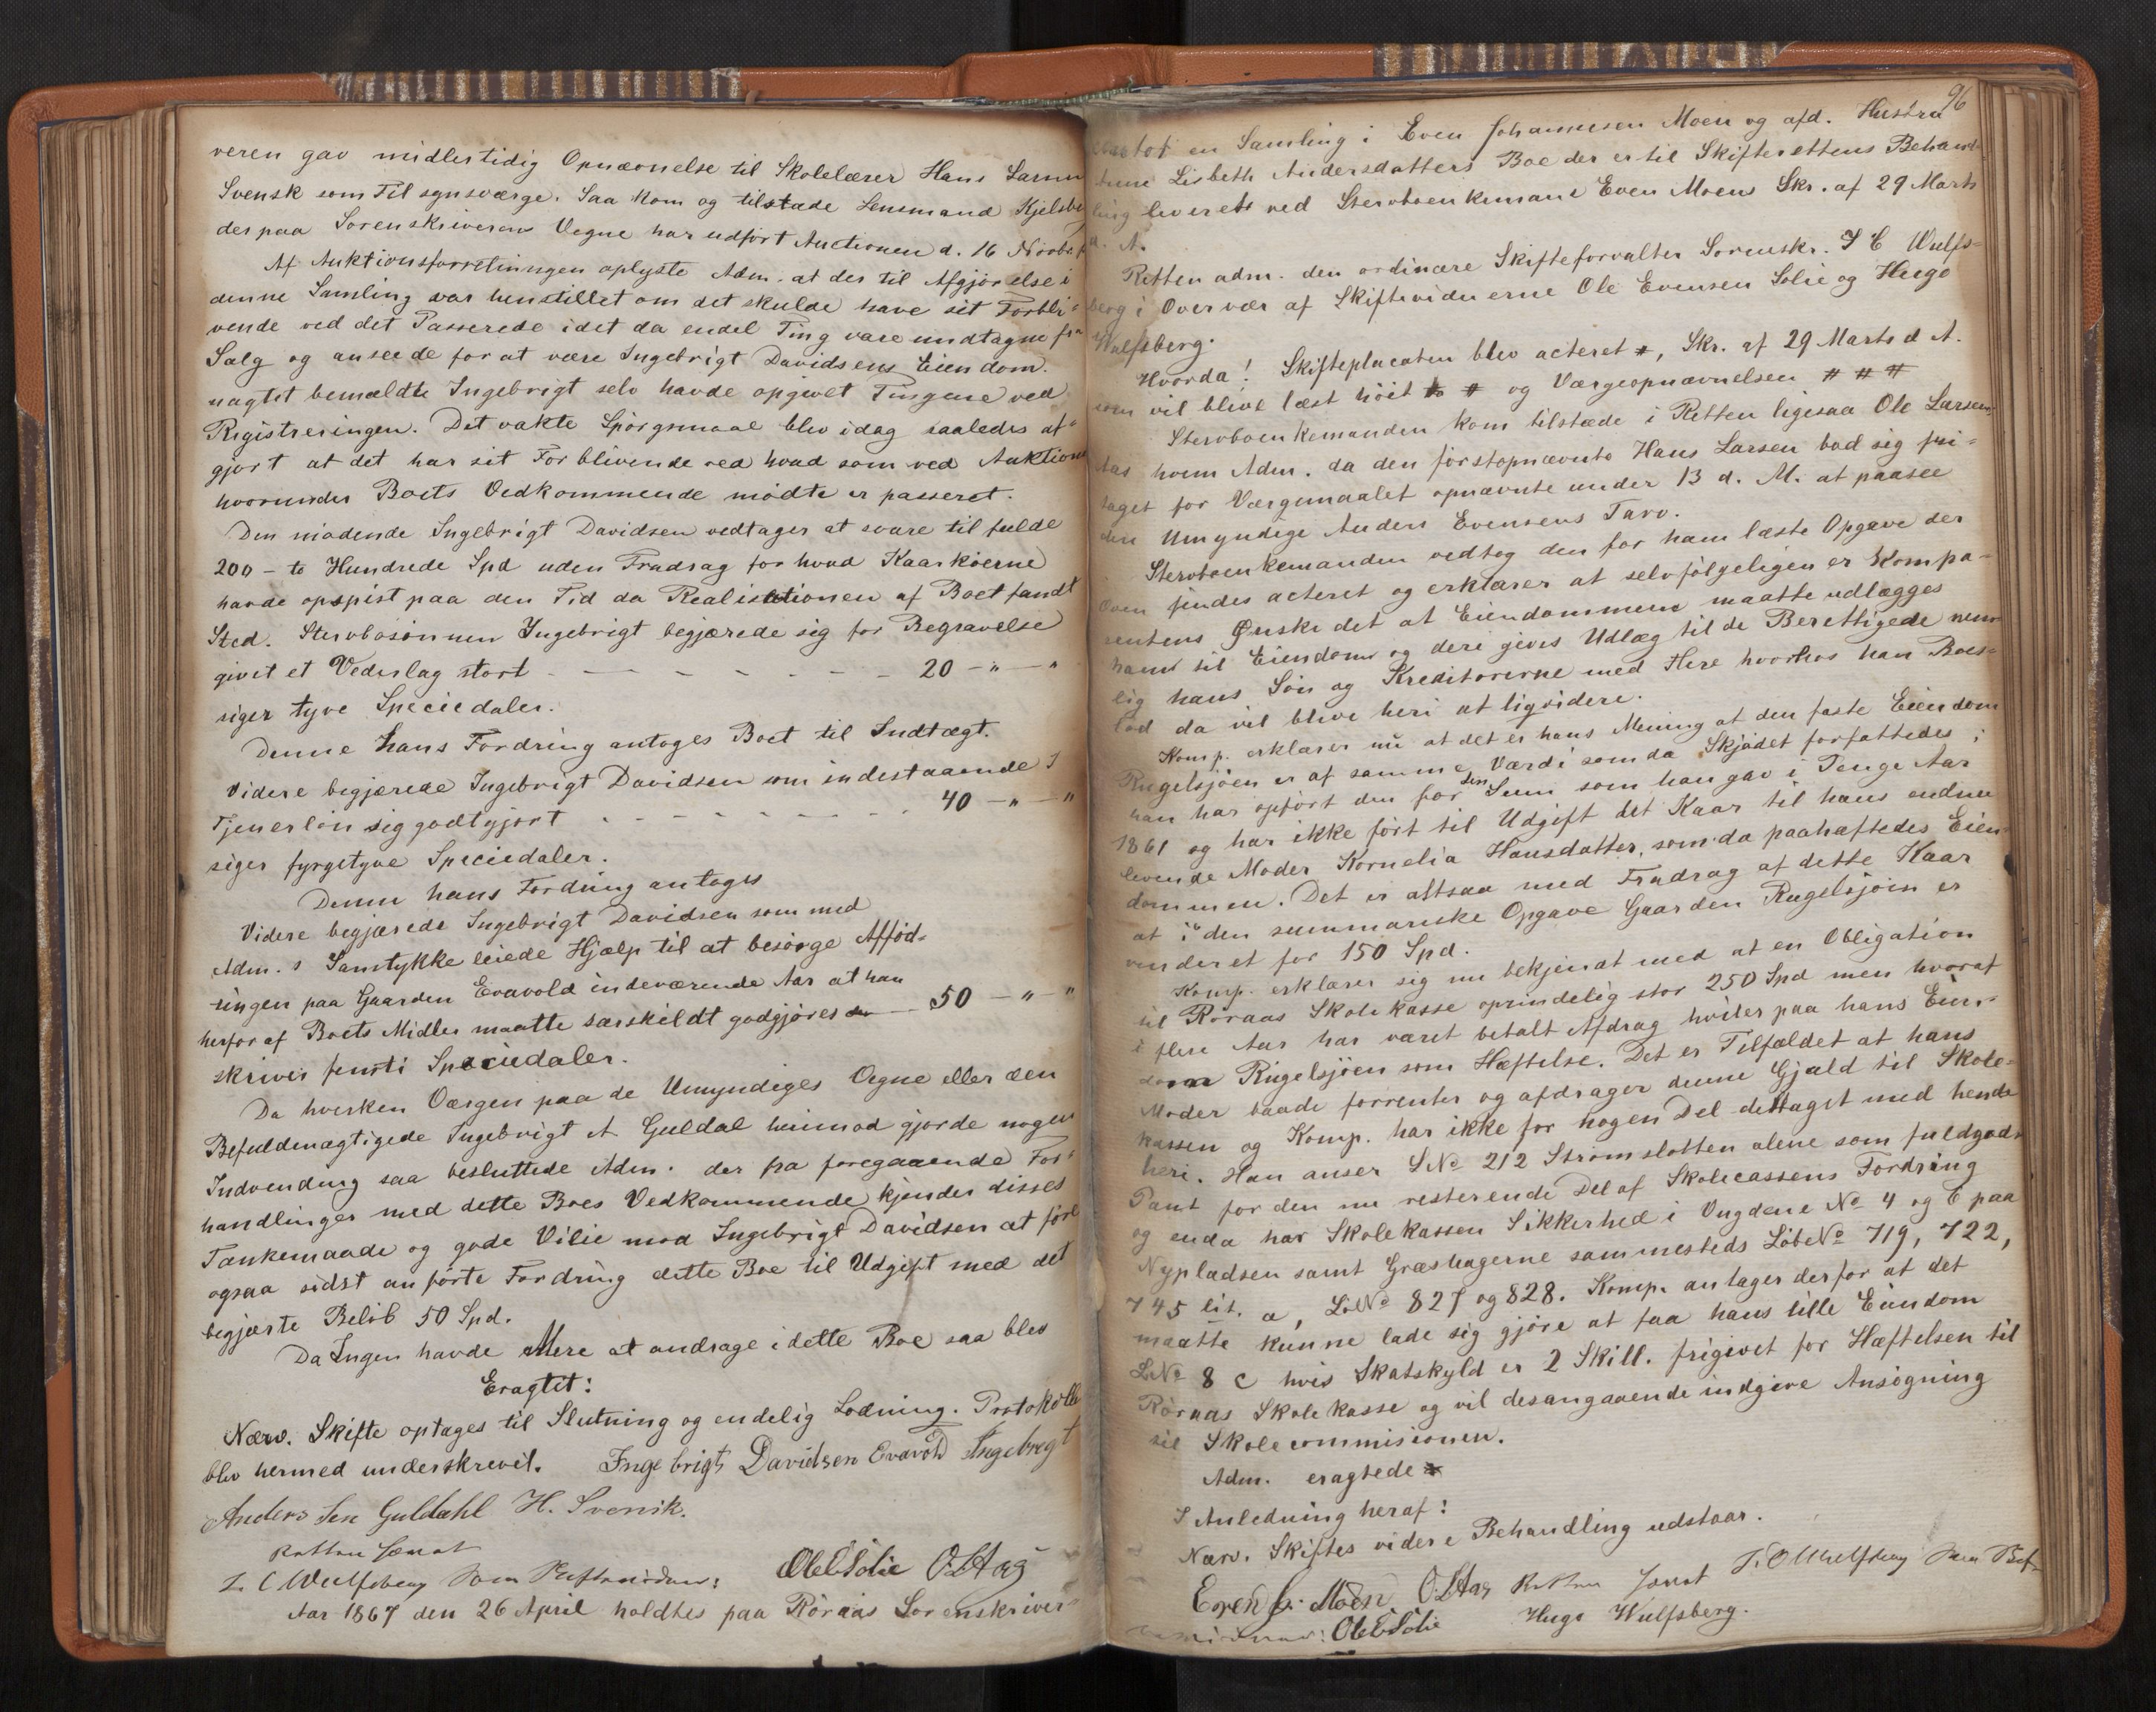 veren gav midlertidig Opnævnelse til Skolelærer Hans Larsen
Svensk som Tilsynsværge. Saa kom og tilstæde Lensmand Kjelsberg
der paa Sorenskriveren Vegne har udført Auctionen d. 16 Novbr f
Af Auktionsforretningen oplyste Adm. at der til Afgjørelse i
denne Samling var henstillet om det skulde have sit Forbli-
vende ved det Passerede idet da endel Ting vare undtagne fra
Salg og anseede for at være Ingebrigt Davidsens Eiendom.
uagtet bemældte Ingebrigt selv havde opgivet Tingene ved
Registreringen. Det vakte Spörgsmaal blev idag saaledes af-
gjort at det har sit Forblivende ved hvad som ved Auktionen
hvorunder Boets Vedkommende mödte er passeret.
Den mödende Ingebrigt Davidsen vedtager at svare til fulde
200 - to Hundrede Spd uden Fradrag for hvad Kaarkjörne
havde opspist paa den Tid da Realisationen af Boet fandt
Sted. Stervbosönnen Ingebrigt begjærede sig for Begravelse
givet et Vederlag stort - - - - - - 20 - " - "
siger tyve Speciedaler.
Denne hans Fordring antages Boet til Indtægt.
Videre begjærede Ingebrigt Davidsen som indestaaende I
Tjenerlön sig godtgjort - - - - - - 40 - " - "
siger fyrgetyve Speciedaler.
Denne hans Fordring antoges
Videre begjærede Ingebrigt Davidsen som med
Adm. s Samtykke leiede Hjælp til at besörge Afföd-
ingen paa Gaarden Evavold indeværende Aar at han
herfor af Boets Midler maatte særskildt godgjöres 50 - " - "
skriver femti Speciedaler.
Da hverken Værgen paa de Umyndiges Vegne eller den
Befuldmægtigede Ingebrigt A Guldal heimod gjorde nogen
Indvending saa besluttede Adm. der fra foregaaende For-
handlinger med dette Boes Vedkommende kjender disses
Tankemaade og gode Vilie mod Ingebrigt Davidsen at före
ogsaa sidst anförte Fordring dette Boe til Udgift med det
begjærte Belöb 50 Spd.
Da Ingen havde Mere at andrage i dette Boe saa blev
Eragtet:
Nærv. Skifte optages til Slutning og endelig Lodning. Protokollen
blev hermed underskrevet. Ingebrigt Davidsen Evavold Ingebregt
Anders Sen Guldahl H. Svensk.
Retten hævet
I. C Wulfsberg Som Skiftevidner: Ole E Solie O. L. Aas
Aar 1867 den 26 April holdtes paa Röraas Sorenskriver-
96
contor en Samling i Even Johannesen Moen og afd. Hustru
Lisbeth Andersdatters Boe der er til Skifterettens Behand-
ling leveret ved Stervboenkemand Even Moens Skr. af 29 Marts
d. A.
Retten adm. den ordinære Skifteforvalter Sorenskr. I C Wulfs-
berg i Overvær af Skiftevidnerne Ole Evensen Solie og Hugo
Wulfsberg.
Hvorda! Skifteplacaten blev acteret #, Skr. af 29 Marts d A.
som vil blive læst höit # og Værgeopnævnelsen # # #
Stervboenkemanden kom tilstæde i Retten ligesaa Ole Larsen
Aas hvem Adm. da den förstopnævnte Hans Larsen bad sig fri-
taget for Værgemaalet opnævnte under 13 d. M. at paasee
den Umyndige Anders Evensens Tarv.
Stervboenkemanden vedtog den for ham læste Opgave der
oven findes acteret og erklærer at selvfölgeligen er Kompa-
rentens Ønske det at Eiendommene maatte udlægges
ham til Eiendom og deri gives Udlæg til de Berettigede nem-
lig hans Sön og Kreditorerne med Flere hvorhos han Boes-
lod da vil blive heri at ligvidere.
Komp. erklærer nu at det er hans Mening at den faste Eiendom
Rugelsjöen er af samme Værdi som da Skjödet forfattedes i
han har opfört den for den Sum som han gav i Penge Aar
1861 og har ikke fört til Udgift det Kaar til hans endnu
levende Moder Kornelia Hansdatter, som da paahæftedes Eien-
dommen. Det er altsaa med Fradrag af dette Kaar
at i den summariske Opgave Gaarden Rugelsjöen er
vurderet for 150 Spd.
Komp. erklærer sig nu bekjendt med at en Obligation
til Röraas Skolekasse oprindelig stor 250 Spd men hvoraf
i flere Aar har været betalt Afdrag hviler paa hans Eien-
dom Rugelsjöen som Hæftelse. Det er Tilfældet at hans
Moder baade forrenter og afdrager denne Gjæld til Skole-
kassen og Komp. har ikke for nogen Del deltaget med hende
heri. Han anser L№ 212 Strömslotten alene som fuldgodt
Pant for den nu resterende Del af Skolecassens Fordring
og enda har Skolekassen Sikkerhed i Vugdene № 4 og 6 paa
Nypladsen samt Græshagerne sammesteds Löbe№ 719, 722,
745 lit. a, L№ 827 og 828. Komp. antager derfor at det
maatte kunne lade sig gjöre at faa hans lille Eiendom
L№ 8 c hvis Skatskyld er 2 Skill. frigivet for Hæftelsen til
Röraas Skolekasse og vil desangaaende indgive Ansögning
til Skolecommisionen.
Adm. eragtede
I Anledning heraf:
Nærv. Skiftes videre Behandling udstaar.
Even J. Moen. O. L. Aas Retten hævet I. C Wulfsberg Som Skif-
tevidner: Ole E Solie Hugo Wulfsberg.